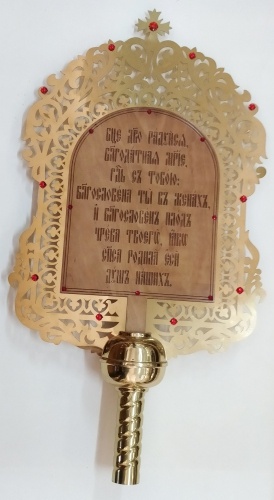 Бце дво радуйся,
благодатная мріе,
гдь съ тобою:
благословена ты въ женахъ,
и благословенъ плодъ
чрева твоегω, якω
спса родила еси
душъ нашихъ.